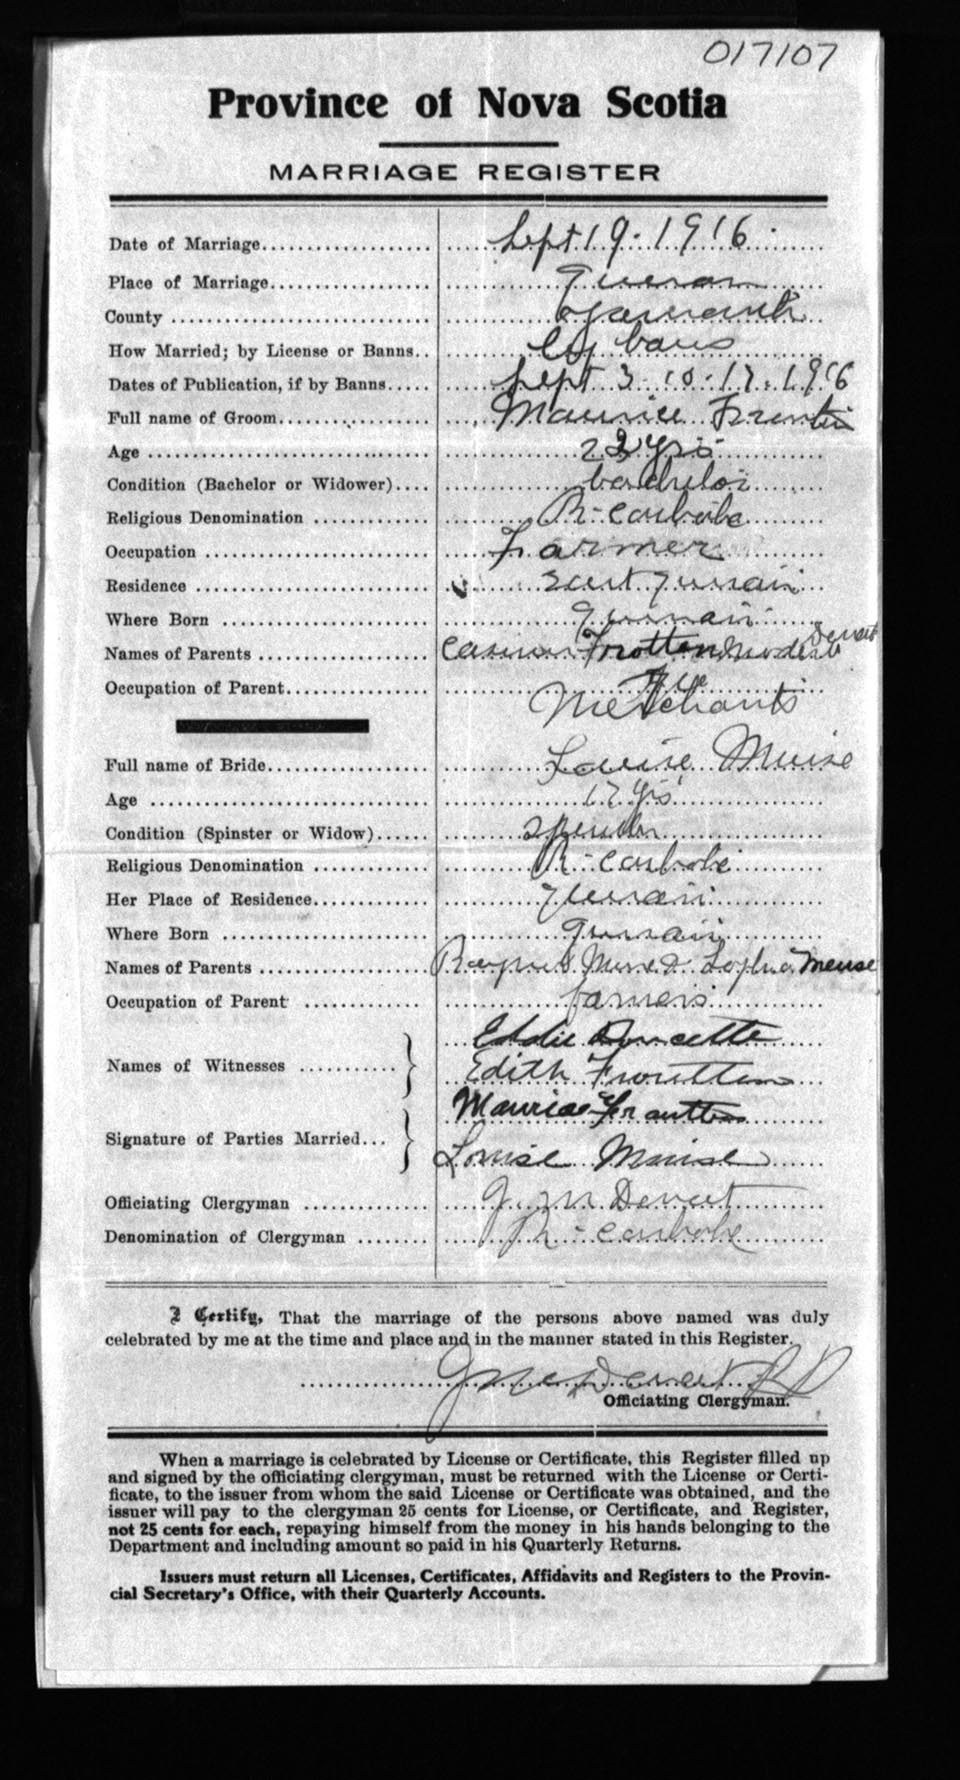 017107
Province of Nova Scotia
MARRIAGE REGISTER
Date of Marriage Sept 19 - 1916
Place of Marriage
County Yarmouth
How Married; by License or Banns by bans
Dates of Publication, if by Banns Sept 3 - 10 - 17 - 1916
Full name of Groom Maurice
Age 22 yrs
Condition (Bachelor or Widower) bachelor
Religious Denomination R - catholic
Occupation Farmer
Residence
Where Born
Names of Parents Frotten
Occupation of Parent Merchants
Full name of Bride Louise Muise
Age 17 yrs
Condition (Spinster or Widow)
Religious Denomination R - catholic
Her Place of Residence
Where Born
Names of Parents Meuse
Occupation of Parent farmers
Names of Witnesses Eddie Doucette
Edith Froutten
Signature of Parties Married Maurice
Louise Muise
Officiating Clergyman
Denomination of Clergyman R - catholic
I Certify, That the marriage of the persons above named was duly
celebrated by me at the time and place and in the manner stated in this Register.
Officiating Clergyman.
When a marriage is celebrated by License or Certificate, this Register filled up
and signed by the officiating clergyman, must be returned with the License or Certi-
ficate, to the issuer from whom the said License or Certificate was obtained, and the
issuer will pay to the clergyman 25 cents for License, or Certificate, and Register,
not 25 cents for each, repaying himself from the money in his hands belonging to the
Department and including amount so paid in his Quarterly Returns.
Issuers must return all Licenses, Certificates, Affidavits and Registers to the Provin-
cial Secretary's Office, with their Quarterly Accounts.